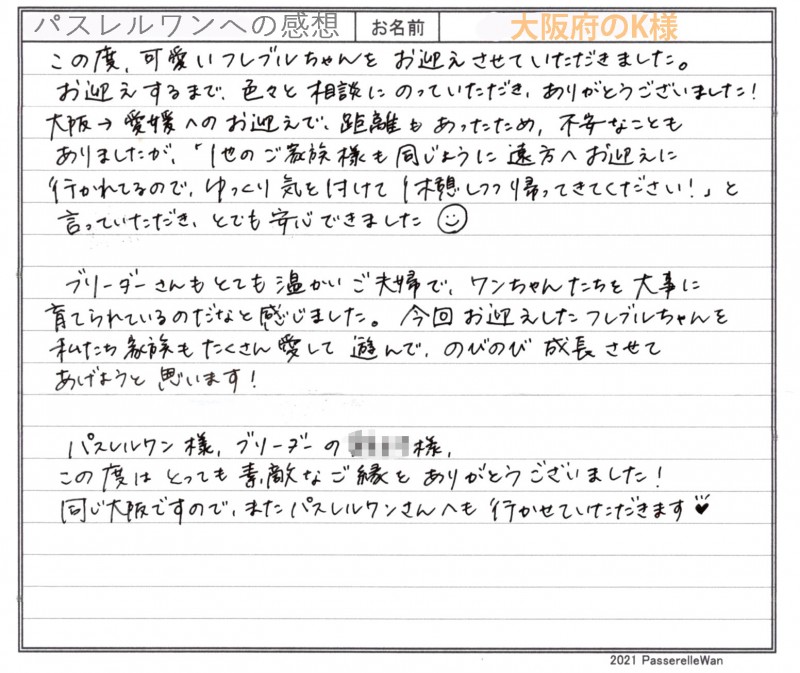 パスレルワンへの感想 お名前 大阪府のK様
この度、可愛いフレブルちゃんを お迎えさせていただきました。
お迎えするまで、色々と相談にのっていただき、ありがとうございました!
大阪→愛媛へのお迎えで、距離もあったため、不安なことも
ありましたが、「他のご家族様も同じように遠方へお迎えに
行かれてるので、ゆっくり気を付けて休憩しつつ帰ってきてください!」と
言っていただき、とても安心できました☺
ブリーダーさんもとても温かいご夫婦で、ワンちゃんたちを大事に
育てられているのだなと感じました。今回お迎えしたフレブルちゃんを
私たち家族もたくさん愛して遊んで、のびのび成長させて
あげようと思います!
パスレルワン様、ブリーダーの 様、
この度はとっても素敵なご縁をありがとうございました!
同じ大阪ですので、またパスレルワンさんへも行かせていただきます♥
2021 PasserelleWan